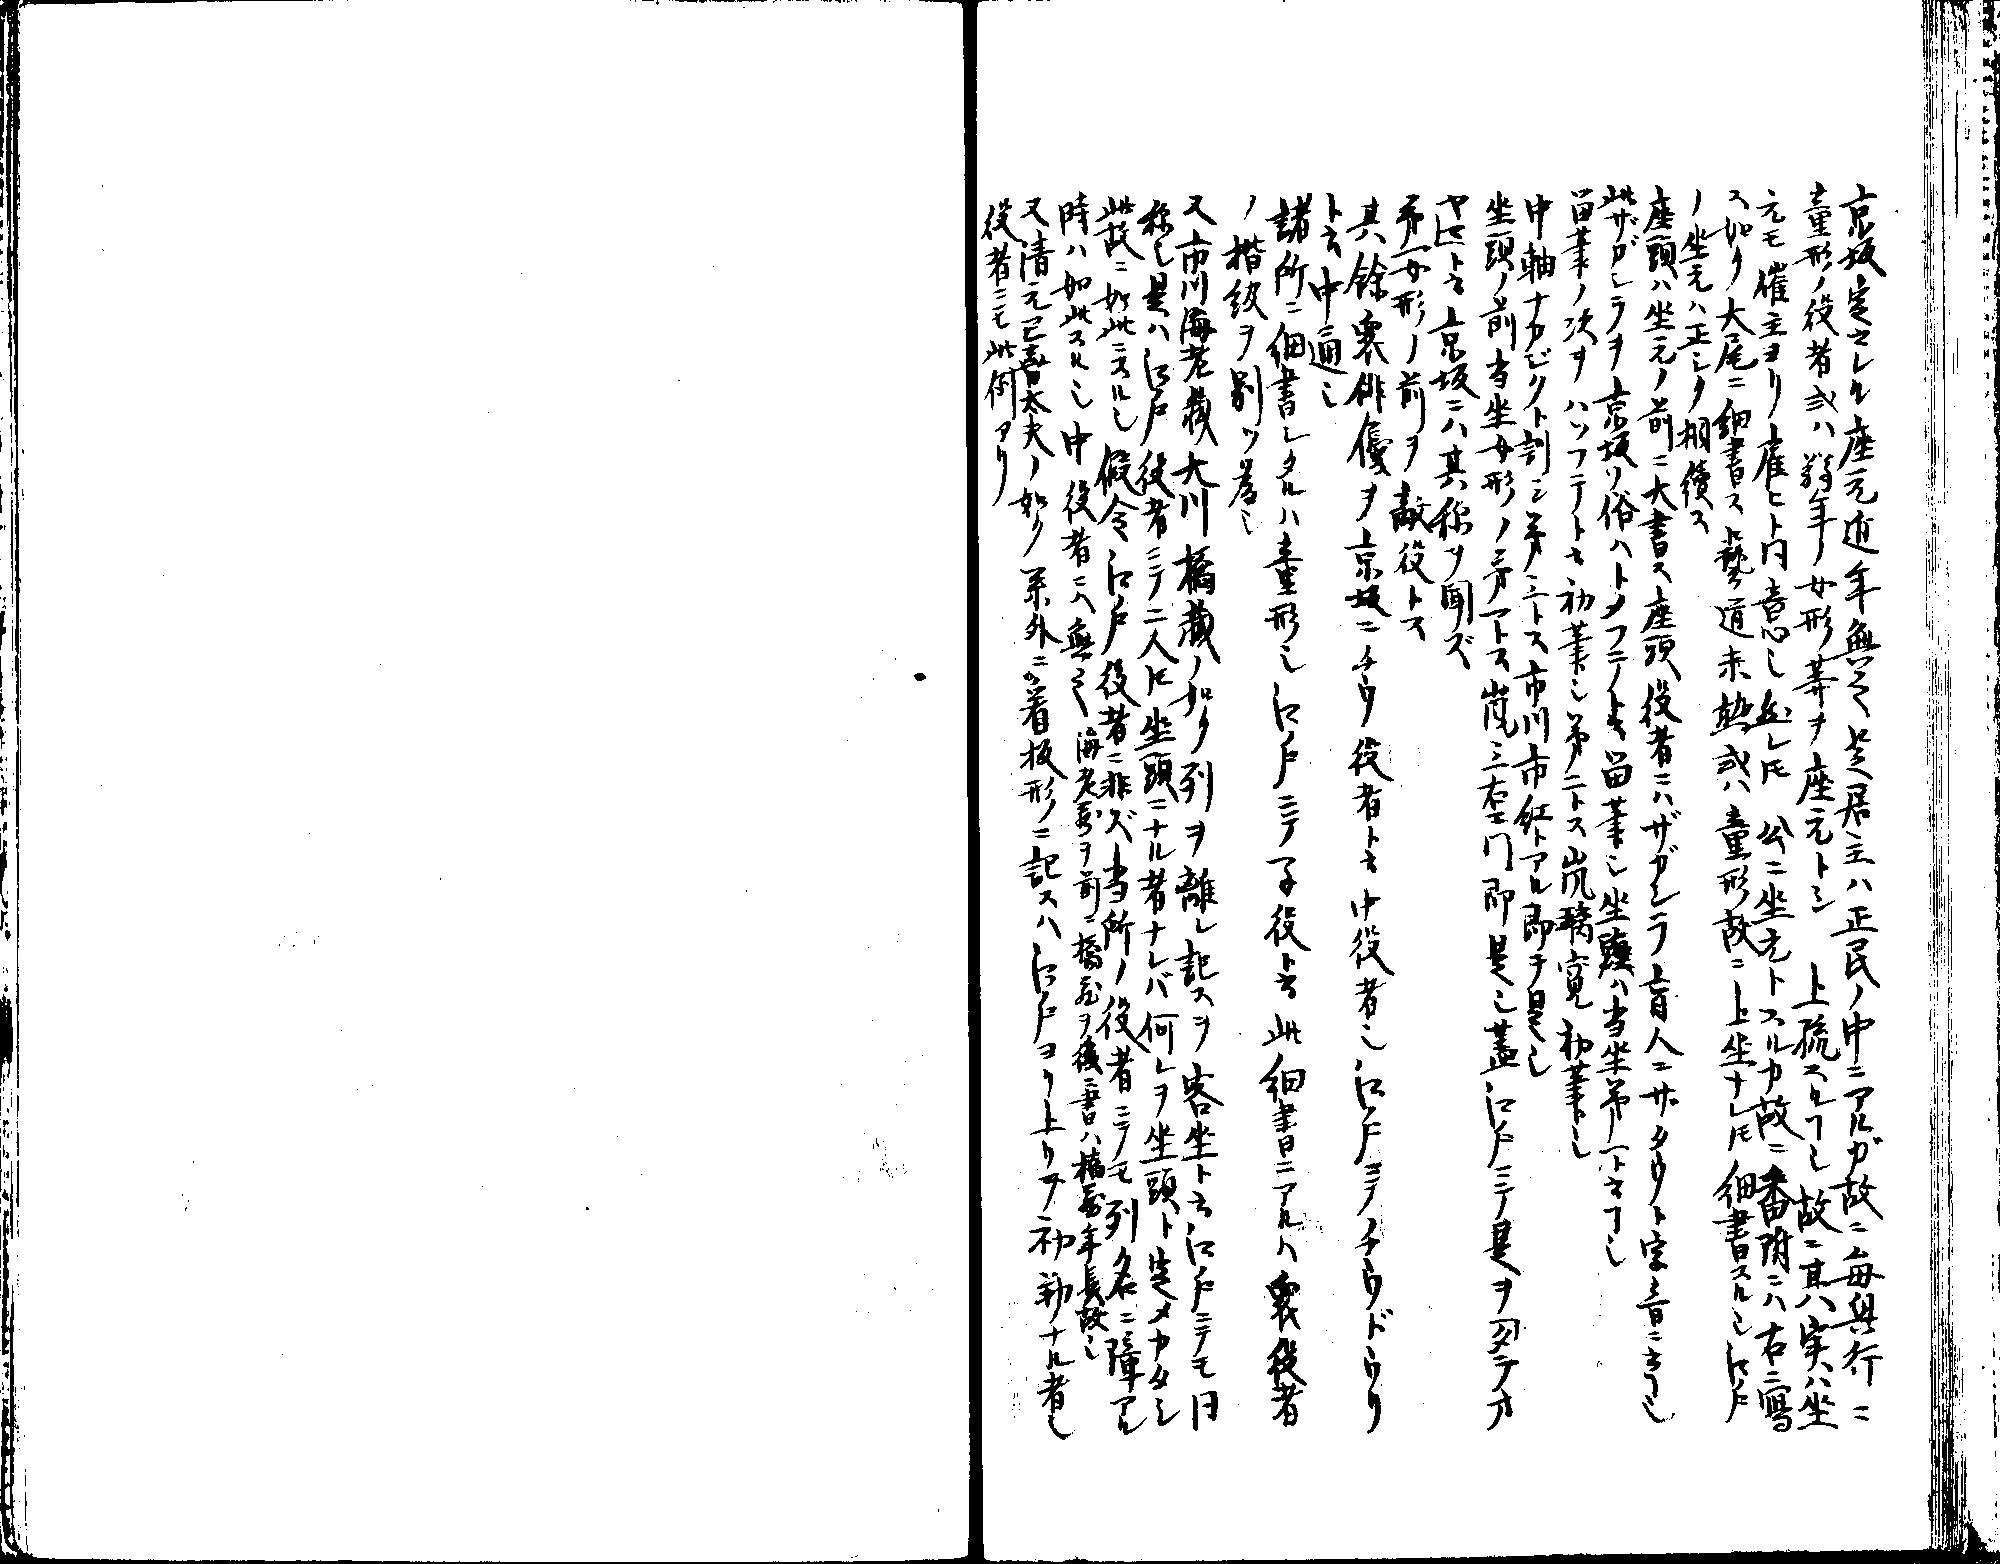 京坂定マレル座元近年無之芝居主ハ正民ノ中ニアルガ故ニ毎興行ニ
童形ノ役者或ハ弱年ノ女形等ヲ座元トシ 上疏スルヿ也故ニ其ハ実ハ坐
元モ催主ヨリ雇ヒト同意也然レトモ公ニ坐元トスルカ故ニ番附ニハ右ニ寫
ス如ク大尾ニ細書ス藝道未熟或ハ童形故ニ上坐ナレトモ細書スル也江戸
ノ坐元ハ正シク相續ス
座頭ハ坐元ノ前ニ大書ス座頭役者ニハザガシラ盲人ニサタウト字音ニ云ヿ也
此ザガシラヲ京坂ノ俗ハトメフデト云留筆也坐頭ハ当坐第一ト云ヿ也
留筆ノ次ヲハツフテト云初筆也第二トス嵐璃寛初筆也
中軸ナカヂクト訓シ第三トス市川市紅トアル即チ是也
坐頭ノ前当坐女形ノ第一トス嵐三右エ門即是也蓋江戸ニテ是ヲタテヲ
ヤマト云京坂ニハ其称ヲ聞ズ
第一女形ノ前ヲ敵役トス
其餘衆俳優ヲ京坂ニチウ役者ト云中役者也江戸ニテチウドウリ
ト云中通也
諸所ニ細書シタルハ童形也江戸ニテ子役ト云此細書ニアルハ衆役者
ノ楷級ヲ別ツ為也
又市川海老蔵大川橋蔵ノ如ク列ヲ離レ記スヲ客坐ト云江戸ニテモ同
称也是ハ江戸役者ニテ二人トモ坐頭ニナル者ナレバ何レヲ坐頭ト定メカタシ
此故ニ如此ニスル也假令江戸役者ニ非ズ当所ノ役者ニテモ列名ニ障アル
時ハ如此スル也中役者ニハ無之海老蔵ヲ前ニ橋蔵ヲ後ニ書ハ橋蔵年長故也
又清元巳喜太夫ノ如ク系外ニ看板形ニ記スハ江戸ヨリ上リテ初勤ナル者也
役者ニモ此例アリ